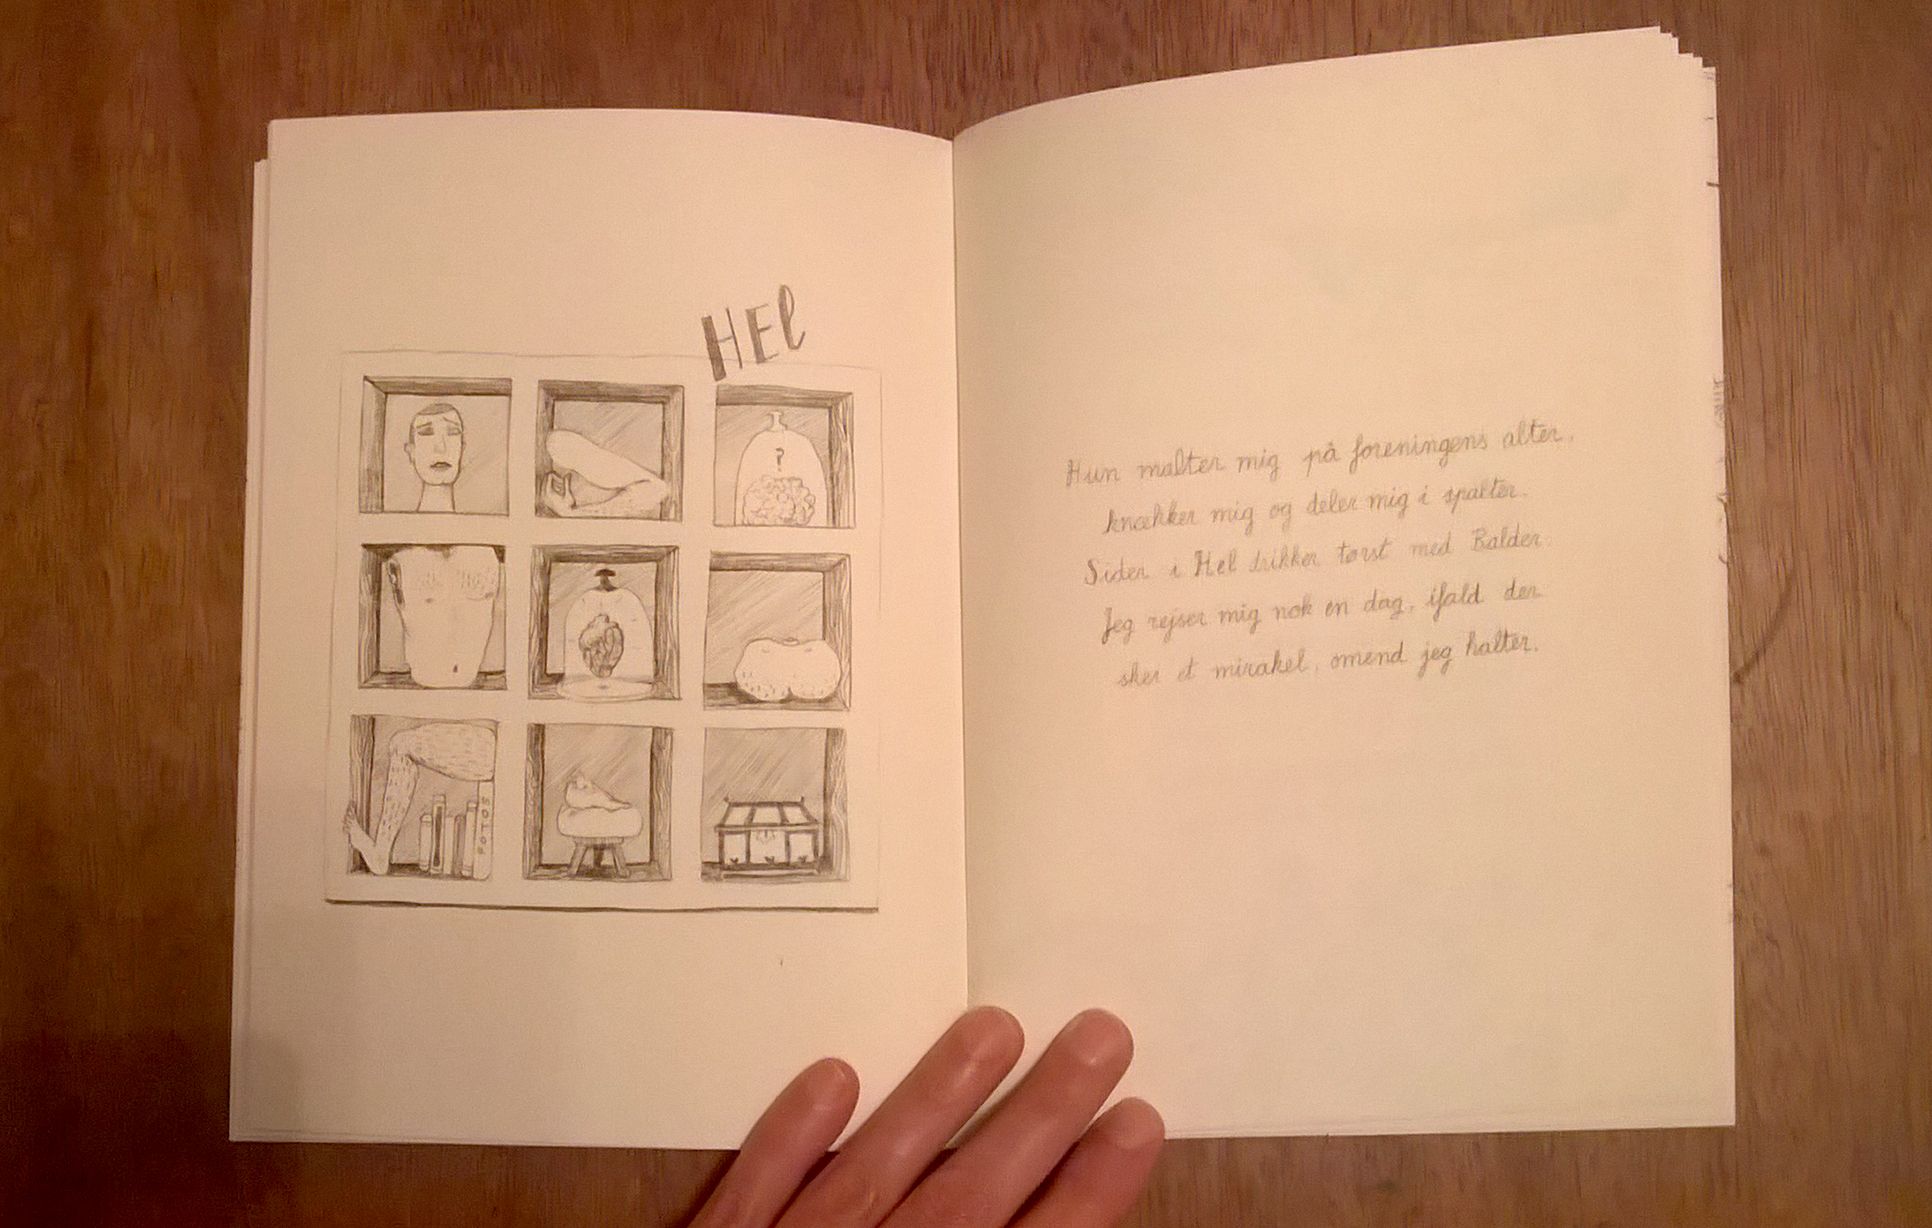 HEl
?
FOTOS
Hun malter mig på foreningens alter,
knækker mig og deler mig i spalter.
Sider i Hel drikker tørst med Balder.
Jeg rejser mig nok en dag, ifald der
sker et mirakel, omend jeg halter.